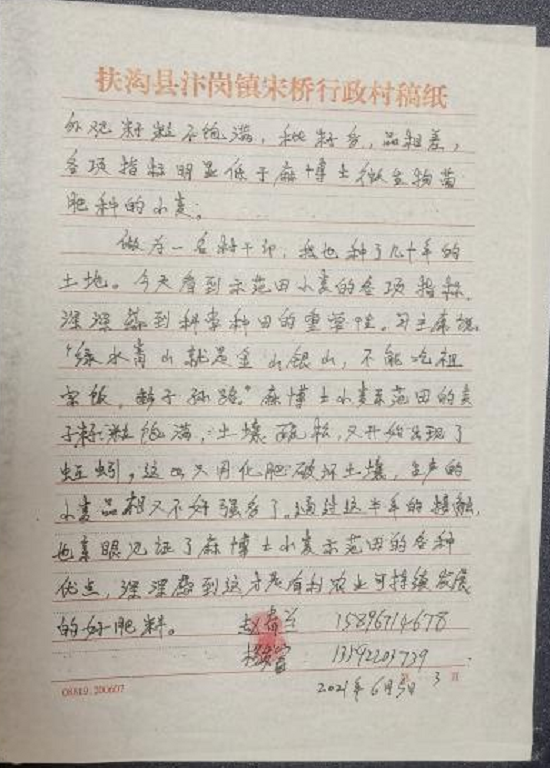 扶沟县汴岗镇宋桥行政村稿纸
外观籽粒不饱满，秕籽多，品相差，
各项指标明显低于麻博士微生物菌
肥种的小麦。
做为一名村干部，我也种了几十年的
土地。今天看到示范田小麦的各项指标，
深深感到科学种田的重要性。习主席说
“绿水青山就是金山银山，不能吃祖
宗饭，断子孙路。”麻博士小麦示范田的麦
子籽粒饱满，土壤疏松，又开始出现了
蚯蚓，这比只用化肥破坏土壤，生产的
小麦品相又不好强多了。通过这半年的接触，
也亲眼见证了麻博士小麦示范田的各种
优点，深深感到这才是有利农业可持续发展
的好肥料。 赵春兰 15896714678
13592203739
2021年6月5日 3 页
08819.200607